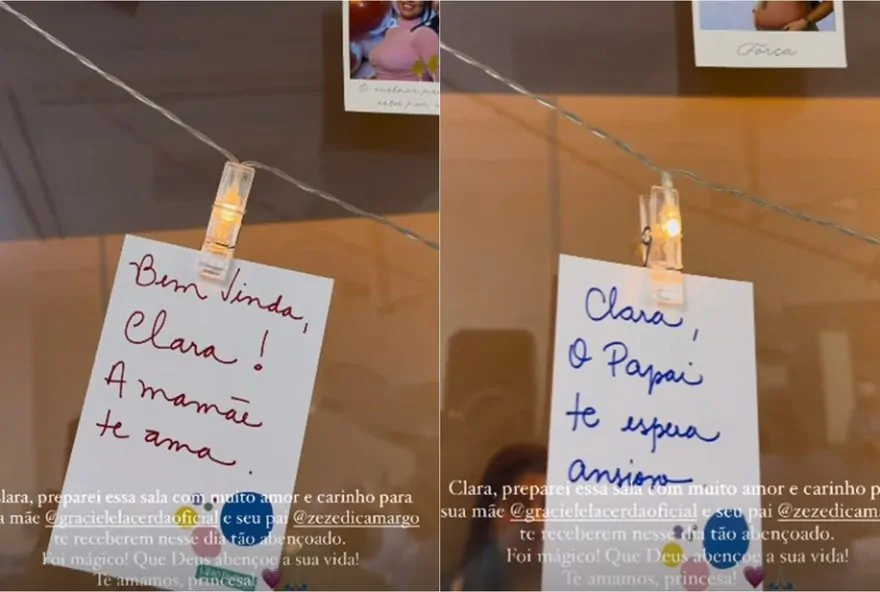 Bem Vinda,
Clara!
A mamãe
te ama.
Clara, preparei essa sala com muito amor e carinho para
a mãe @gracielelacerdaoficial e seu pai @zezedicamargo
te receberem nesse dia tão abençoado.
Foi mágico! Que Deus abençoe a sua vida!
Te amamos, princesa!
Força
Clara,
O Papai
te espera
ansioso.
Clara, preparei essa sala com muito amor e carinho p
sua mãe @gracielelacerdaoficial e seu pai @zezedicama
te receberem nesse dia tão abençoado.
Foi mágico! Que Deus abençoe a sua vida!
Te amamos, princesa!